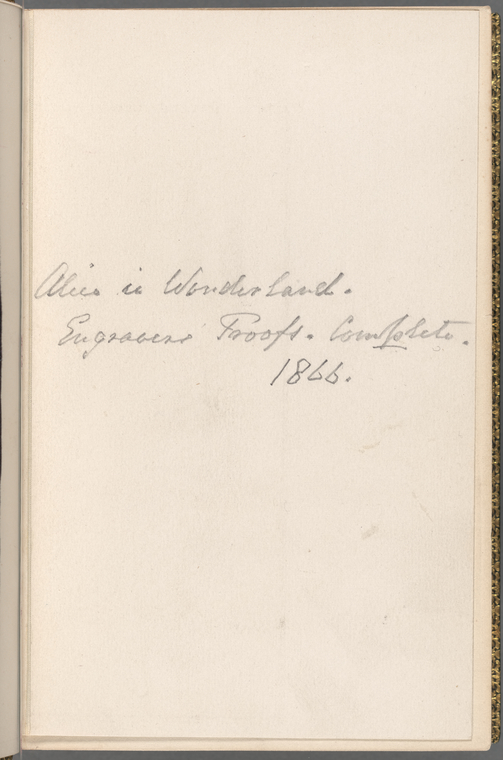 Alice in Wonderland.
Engravers Proofs. Complete.
1866.